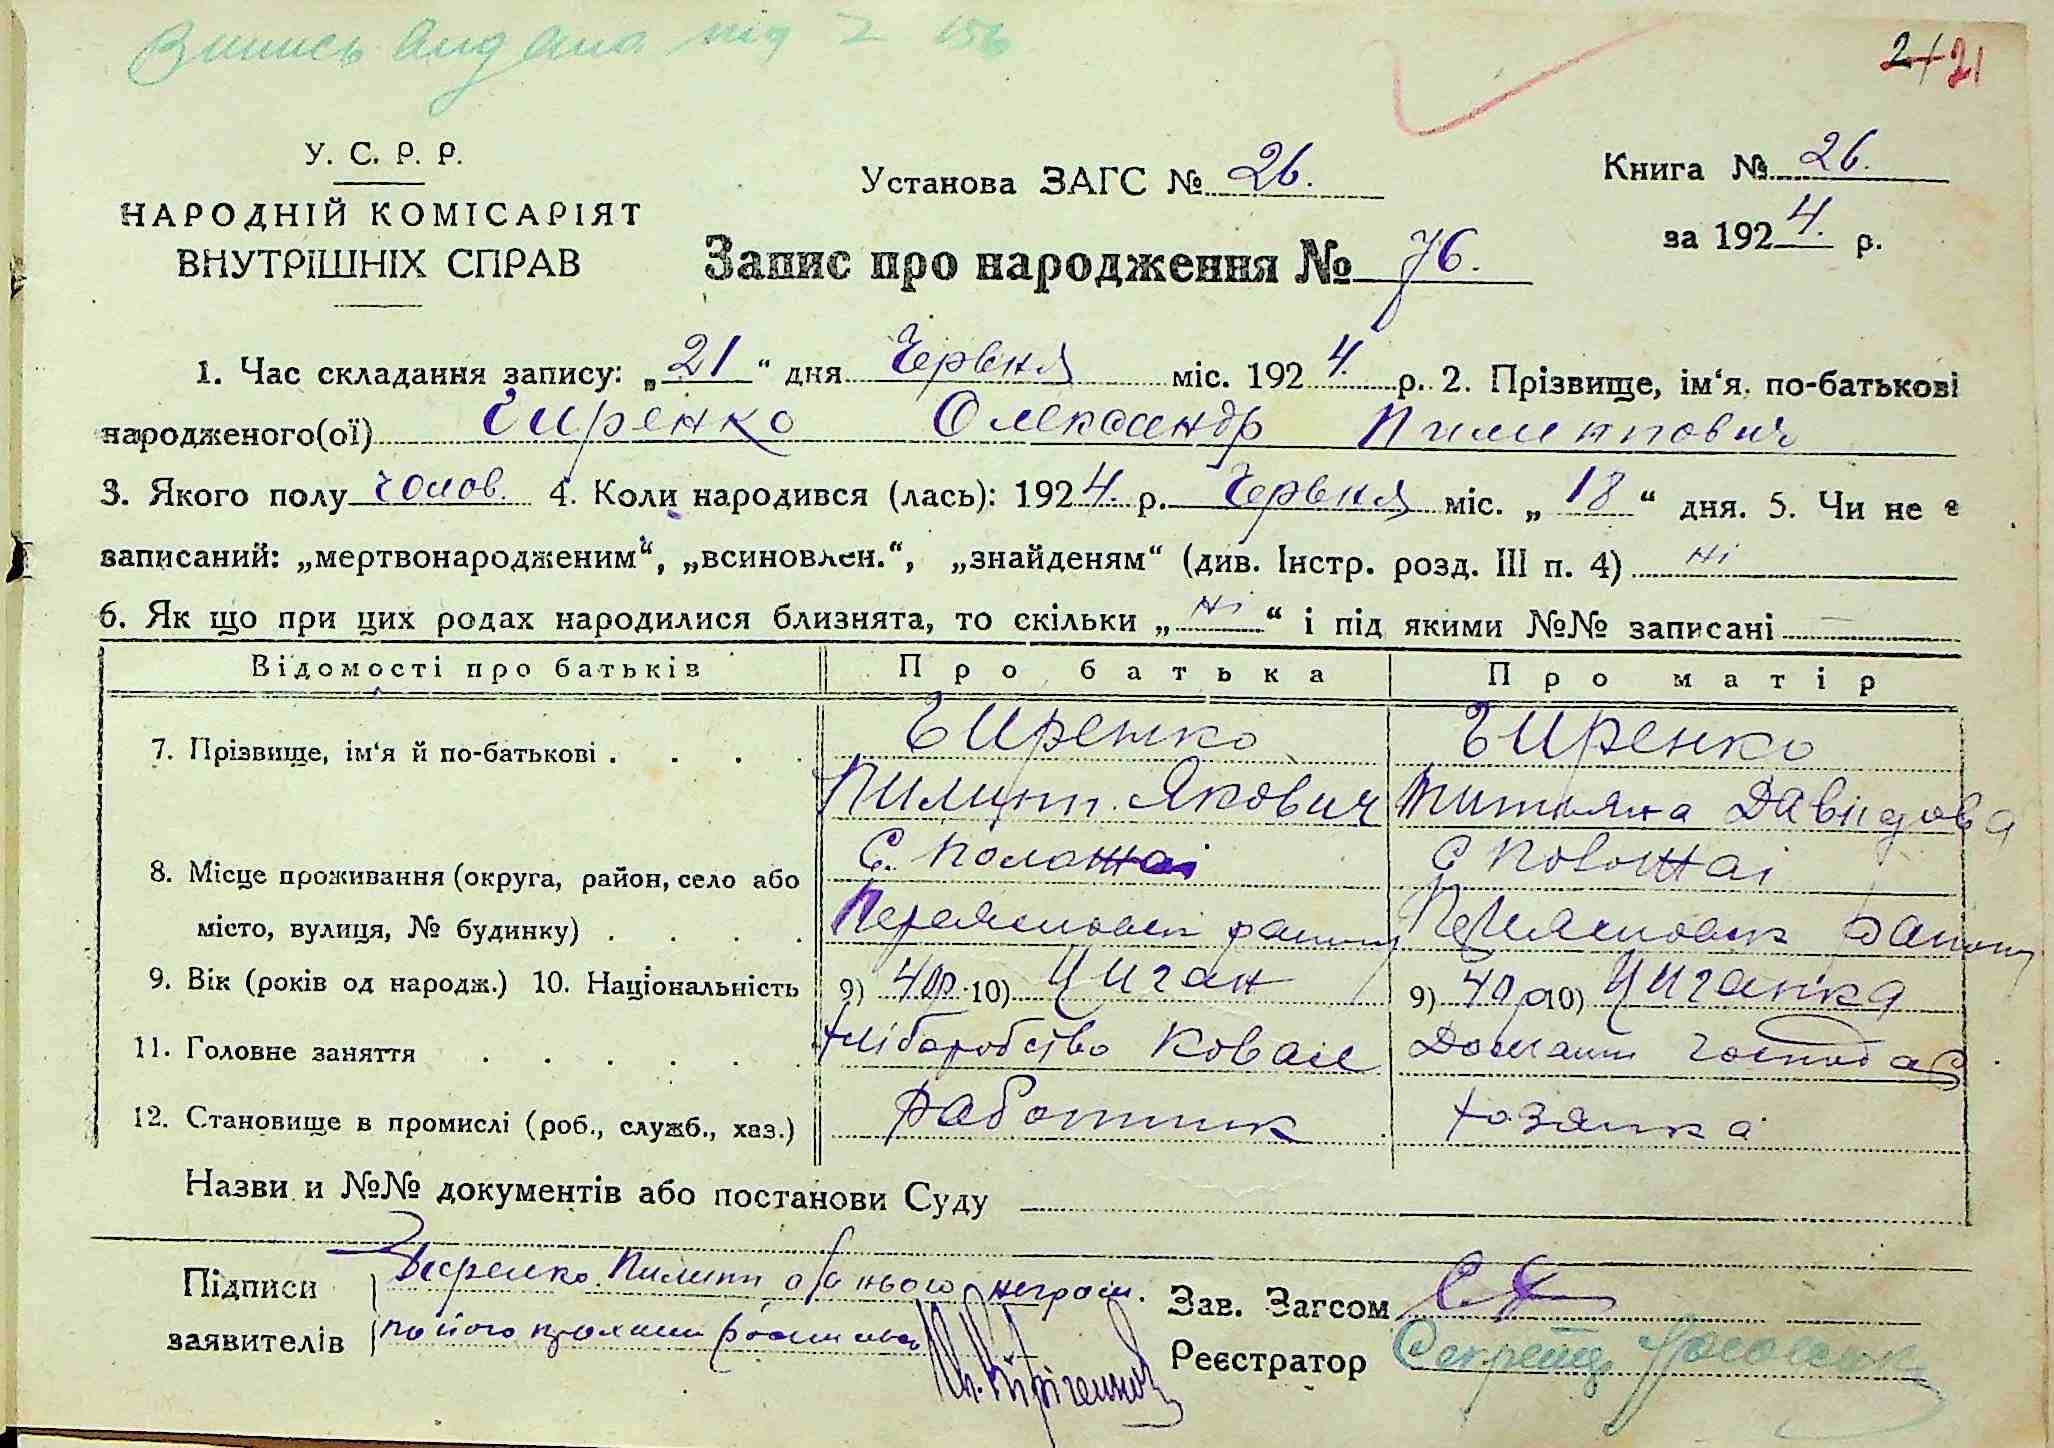 Випись видана під №156
21
У. С. Р. Р.
НАРОДНІЙ КОМІСАРІЯТ
ВНУТРІШНІХ СПРАВ
Установа ЗАГС № 26.
Книга № 26.
за 1924. р.
Запис про народження № 76.
1. Час складання запису: „21“ дня Червня міс. 1924. р. 2. Прізвище, ім‘я, по-батькові
народженого(ої) Чиренко Олександр Пилиппович
3. Якого полу чолов. 4. Коли народився (лась): 1924. р. Червня міс. „18“ дня. 5. Чи не є
записаний: „мертвонародженим“, „всиновлен.“, „знайденям“ (див. Інстр. розд. III п. 4) ні
6. Як що при цих родах народилися близнята, то скільки „ні“ і під якими №№ записані —
Відомості про батьків Про батька Про матір
7. Прізвище, ім‘я й по-батькові . . . . Чиренко Чиренко
Пилипп Якович Титяна Давидова
8. Місце проживання (округа, район, село або С. Положаі С Положаі
місто, вулиця, № будинку) . . . . Переяславськ району Переяславськ району
9. Вік (років од народж.) 10. Національність 9) 40р 10) Циган 9) 40р 10) Циганка
11. Головне заняття . . . . . Хліборобство Коваль Домашн господар
12. Становище в промислі (роб., служб., хаз.) работник хозяика
Назви и №№ документів або постанови Суду
Підписи Чиренко Пилипп а за нього неграм.
заявителів по його прохання росписався
Зав. Загсом
Реєстратор Секретар